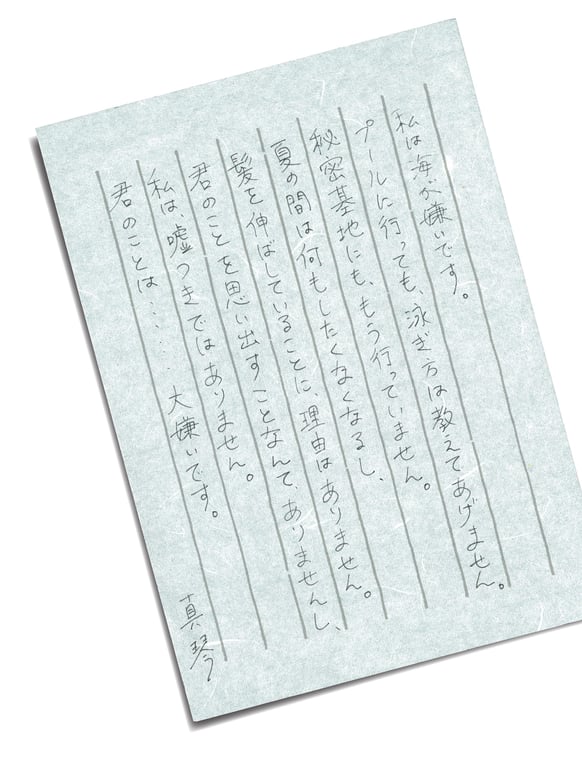 私は海が嫌いです。
プールに行っても、泳ぎ方は教えてあげません。
秘密基地にも、もう行っていません。
夏の間は何もしたくなくなるし、
髪を伸ばしていることに、理由はありません。
君のことを思い出すことなんて、ありませんし、
私は、嘘つきではありません。
君のことは‥‥‥大嫌いです。
真琴